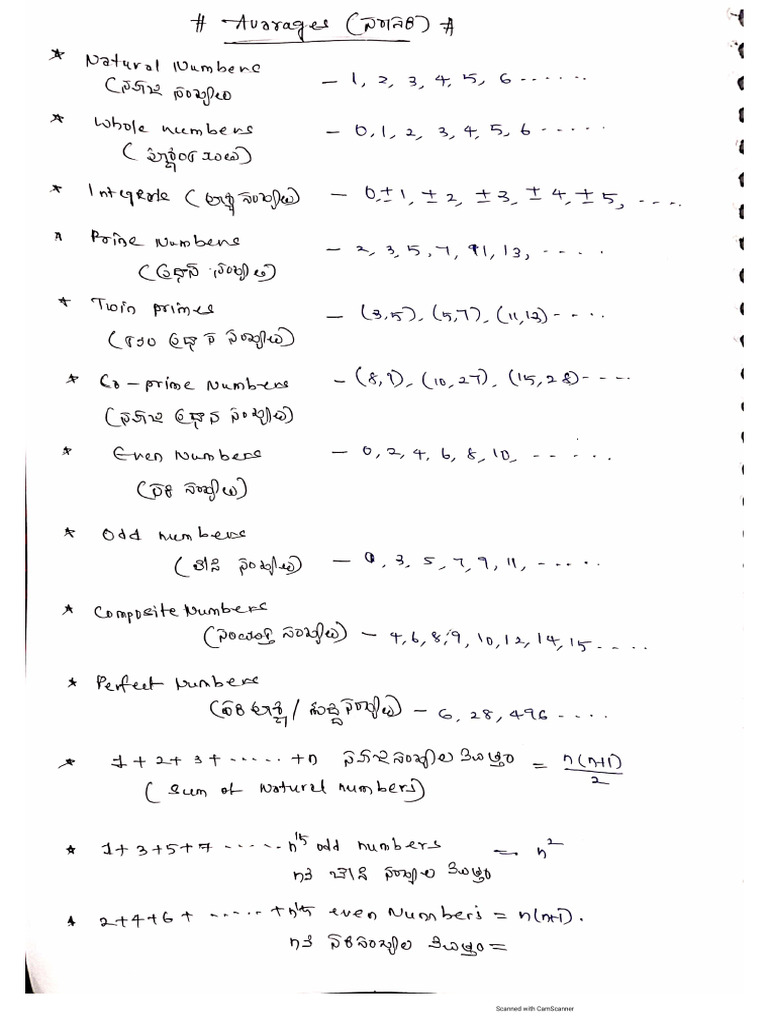 # Avarages (సరాసరి) #
* Natural Numbers – 1, 2, 3, 4, 5, 6 ......
(సహజ సంఖ్యలు
* Whole numbers – 0, 1, 2, 3, 4, 5, 6 .....
(పూర్ణాంకములు)
* (పూర్ణ సంఖ్యలు) – 0, ±1, ±2, ±3, ±4, ±5, ....
* Prime Numbers – 2, 3, 5, 7, 11, 13, ....
(ప్రధాన సంఖ్యలు)
* Twin primes – (3,5), (5,7), (11,13) ....
(కవల ప్రధాన సంఖ్యలు)
* Co-prime Numbers – (8,9), (10,27), (15,28) ....
(సహజ ప్రధాన సంఖ్యలు)
* Even Numbers – 0, 2, 4, 6, 8, 10, .....
(సరి సంఖ్యలు)
* Odd numbers
(బేసి సంఖ్యలు) – 1, 3, 5, 7, 9, 11, .....
* Composite Numbers
(సంయుక్త సంఖ్యలు) – 4, 6, 8, 9, 10, 12, 14, 15 ....
* Perfect Numbers
(పరిపూర్ణ / శుద్ధ సంఖ్యలు) – 6, 28, 496 ....
* 1 + 2 + 3 + ..... + n సహజసంఖ్యల మొత్తం = n(n+1)/2
(Sum of Natural numbers)
* 1 + 3 + 5 + 7 ..... nth odd numbers = n²
n వ బేసి సంఖ్యల మొత్తం
* 2 + 4 + 6 + ..... + nth even Numbers = n(n+1).
n వ సరిసంఖ్యల మొత్తం =
Scanned with CamScanner